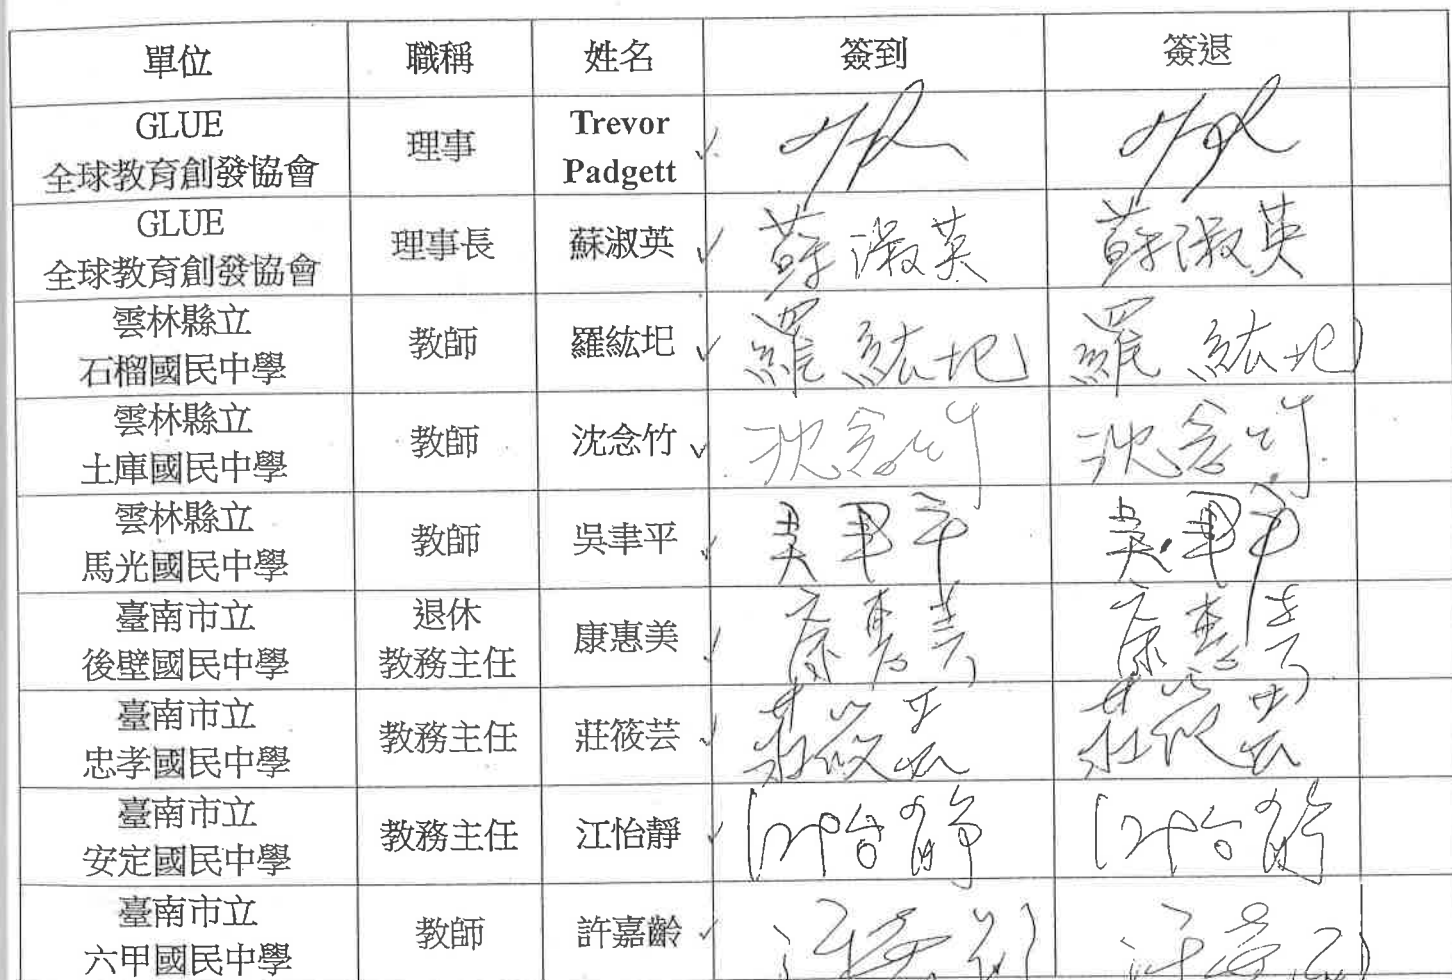 單位 職稱 姓名 簽到 簽退
GLUE
全球教育創發協會 理事 Trevor
Padgett
GLUE
全球教育創發協會 理事長 蘇淑英 蘇淑英 蘇淑英
雲林縣立
石榴國民中學 教師 羅紘圯 羅紘圯 羅紘圯
雲林縣立
土庫國民中學 教師 沈念竹 沈念竹 沈念竹
雲林縣立
馬光國民中學 教師 吳聿平 吳聿平 吳聿平
臺南市立
後壁國民中學 退休
教務主任 康惠美 康惠美 康惠美
臺南市立
忠孝國民中學 教務主任 莊筱芸 莊筱芸 莊筱芸
臺南市立
安定國民中學 教務主任 江怡靜 江怡靜 江怡靜
臺南市立
六甲國民中學 教師 許嘉齡